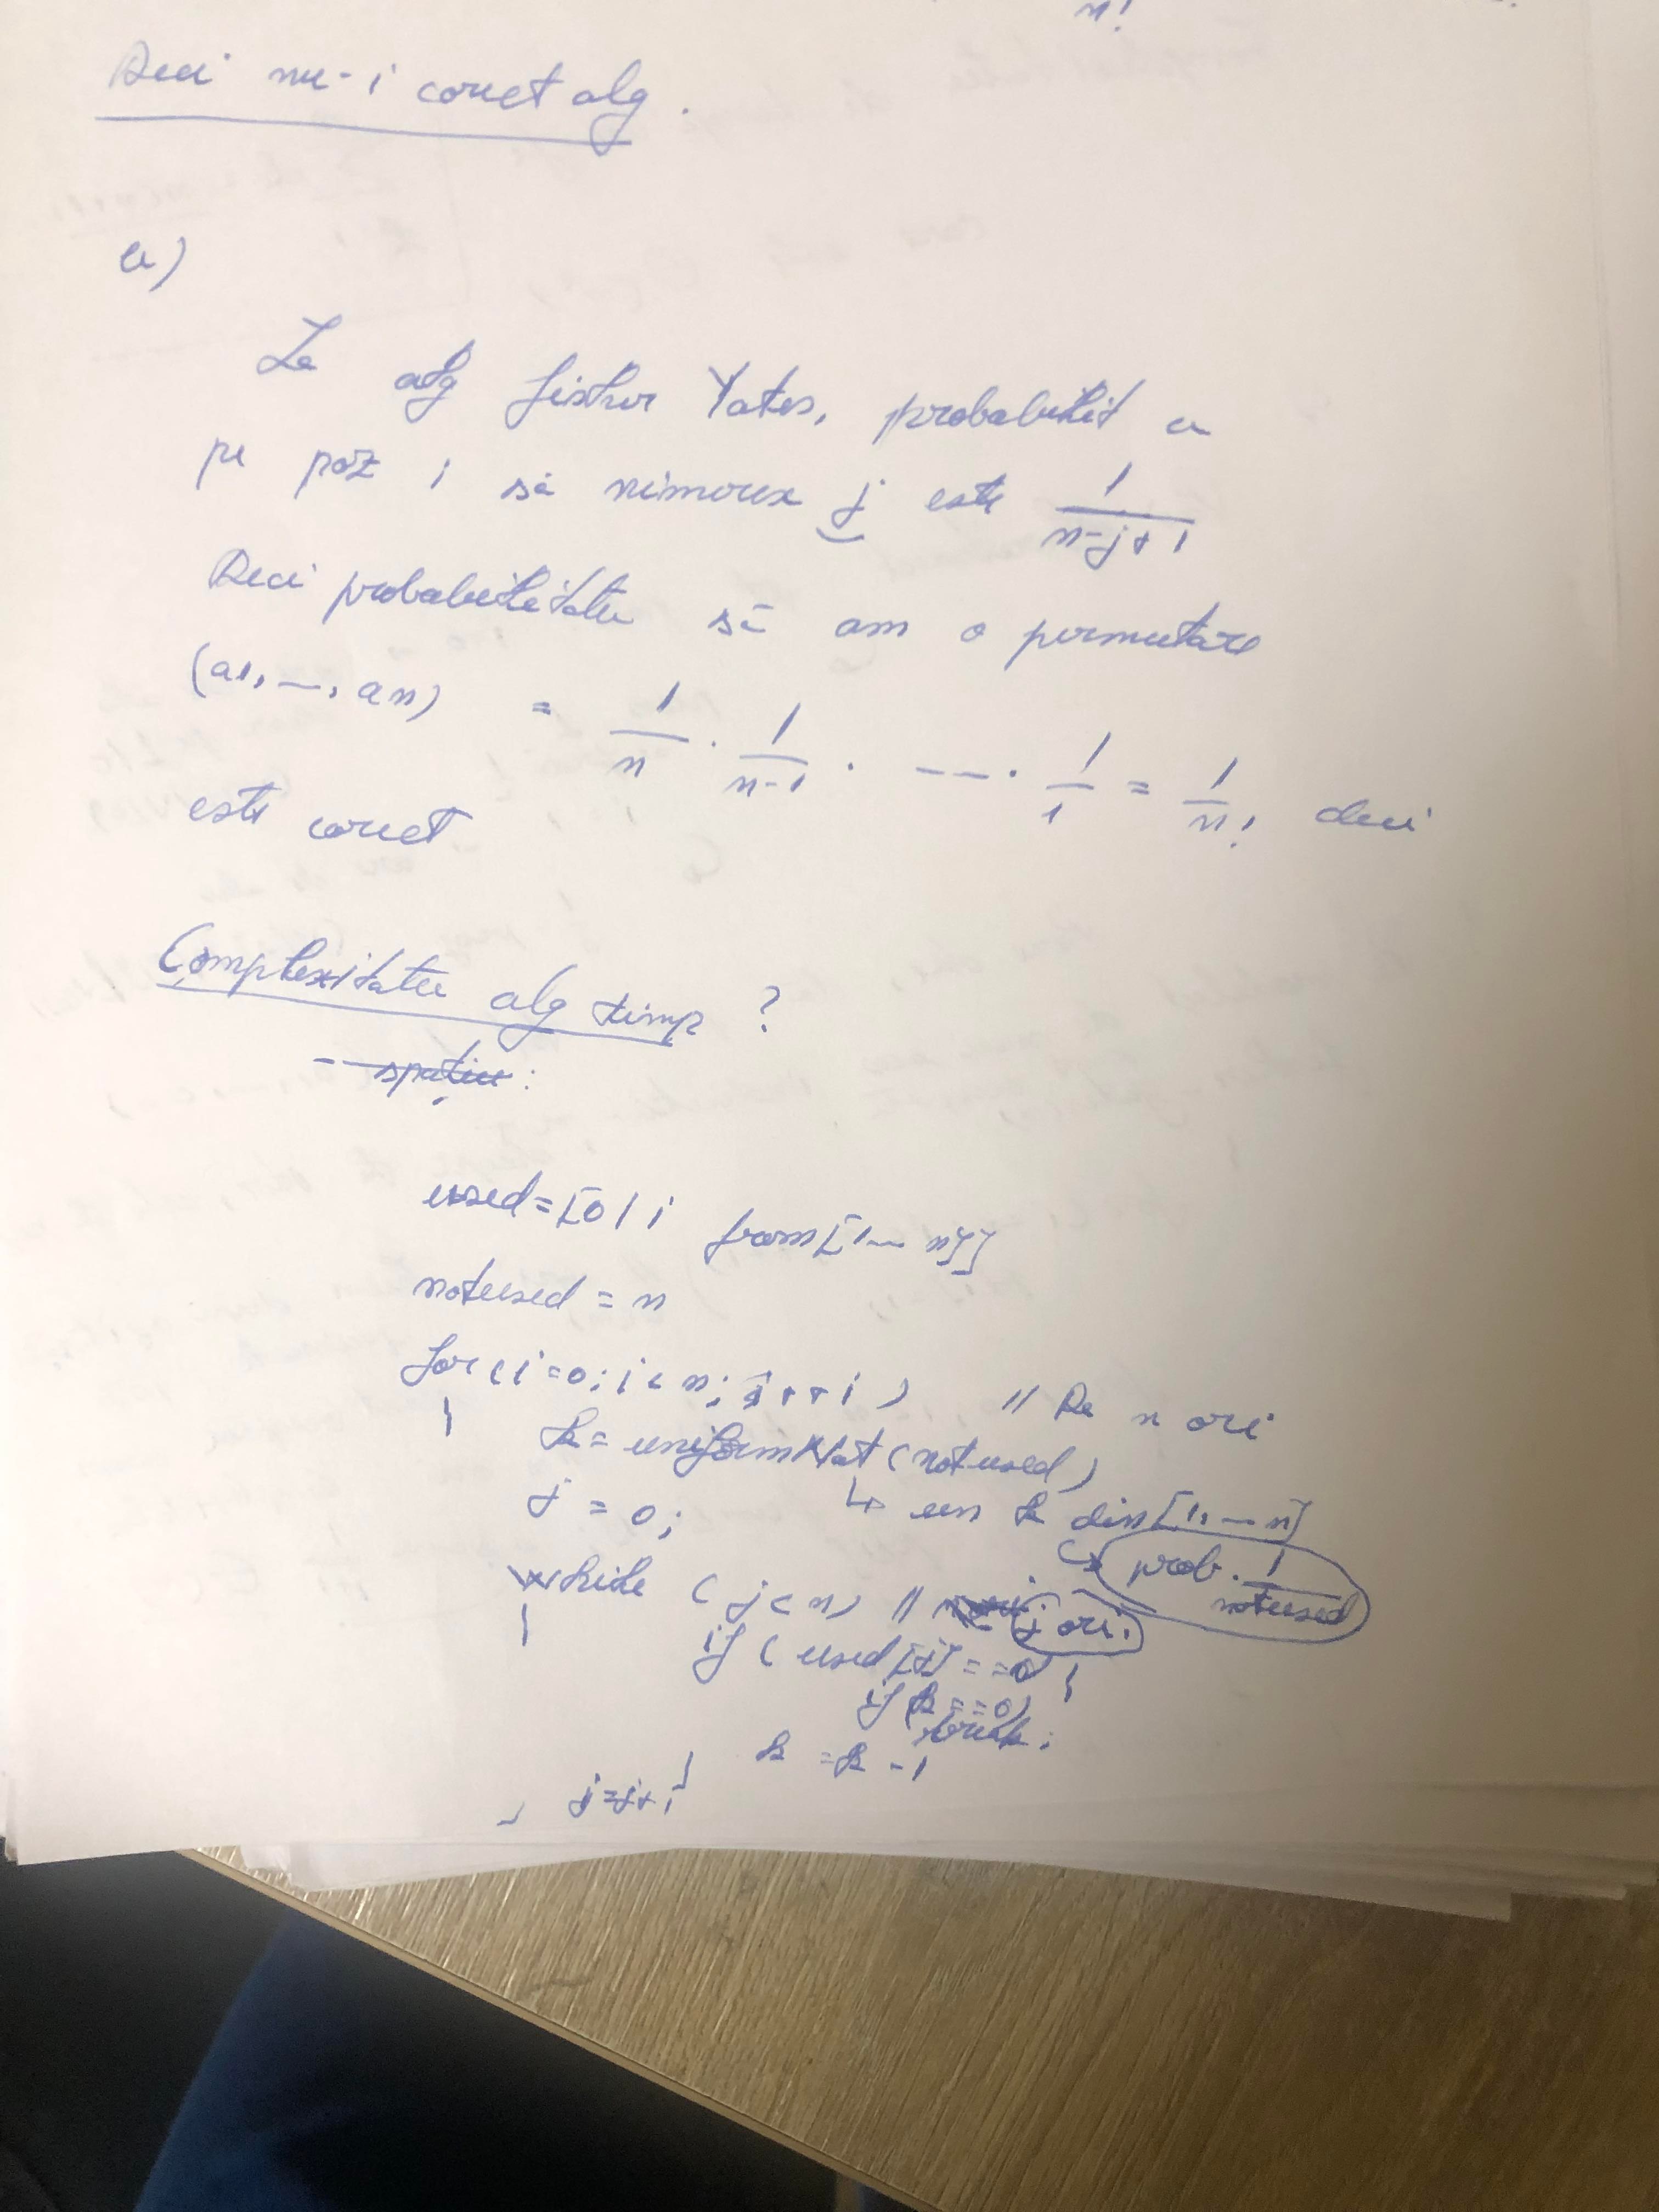 n!
Deci nu-i corect alg.
a)
La alg Fisher Yates, probabilit ca
pe poz i să nimerex j este 1/(n-j+1)
Deci probabilitatea să am o permutare
(a1, —, an) = 1/n · 1/(n-1) · --- · 1/1 = 1/n! deci
este corect
Complexitatea alg timp ?
spațiu :
used = [0 | i from [1— n]]
notused = n
for (i=0; i < n; i++) // De n ori
{
k = uniformNat (notused)
↳ un k din [1, — n]
j = 0;
↳ prob. 1/notused
while (j < n) // j ori.
{
if (used[j] == 0) {
if (k == 0)
break;
k = k - 1
}
j = j+1